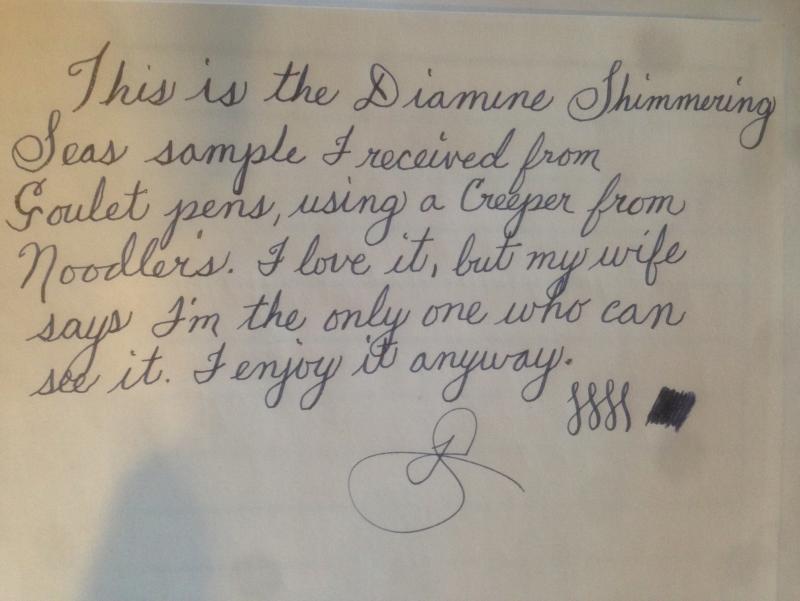 This is the Diamine Shimmering
Seas sample I received from
Goulet pens, using a Creeper from
Noodler's. I love it, but my wife
says I'm the only one who can
see it. I enjoy it anyway.